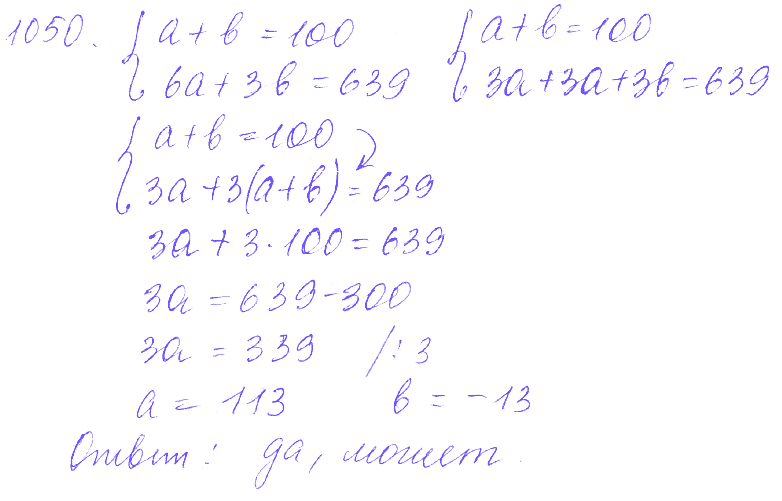 1050. { a + b = 100 { a + b = 100
6a + 3b = 639 3a + 3a + 3b = 639
{ a + b = 100
3a + 3(a + b) = 639
3a + 3 · 100 = 639
3a = 639 - 300
3a = 339 /: 3
a = 113 b = -13
Ответ: да, может.